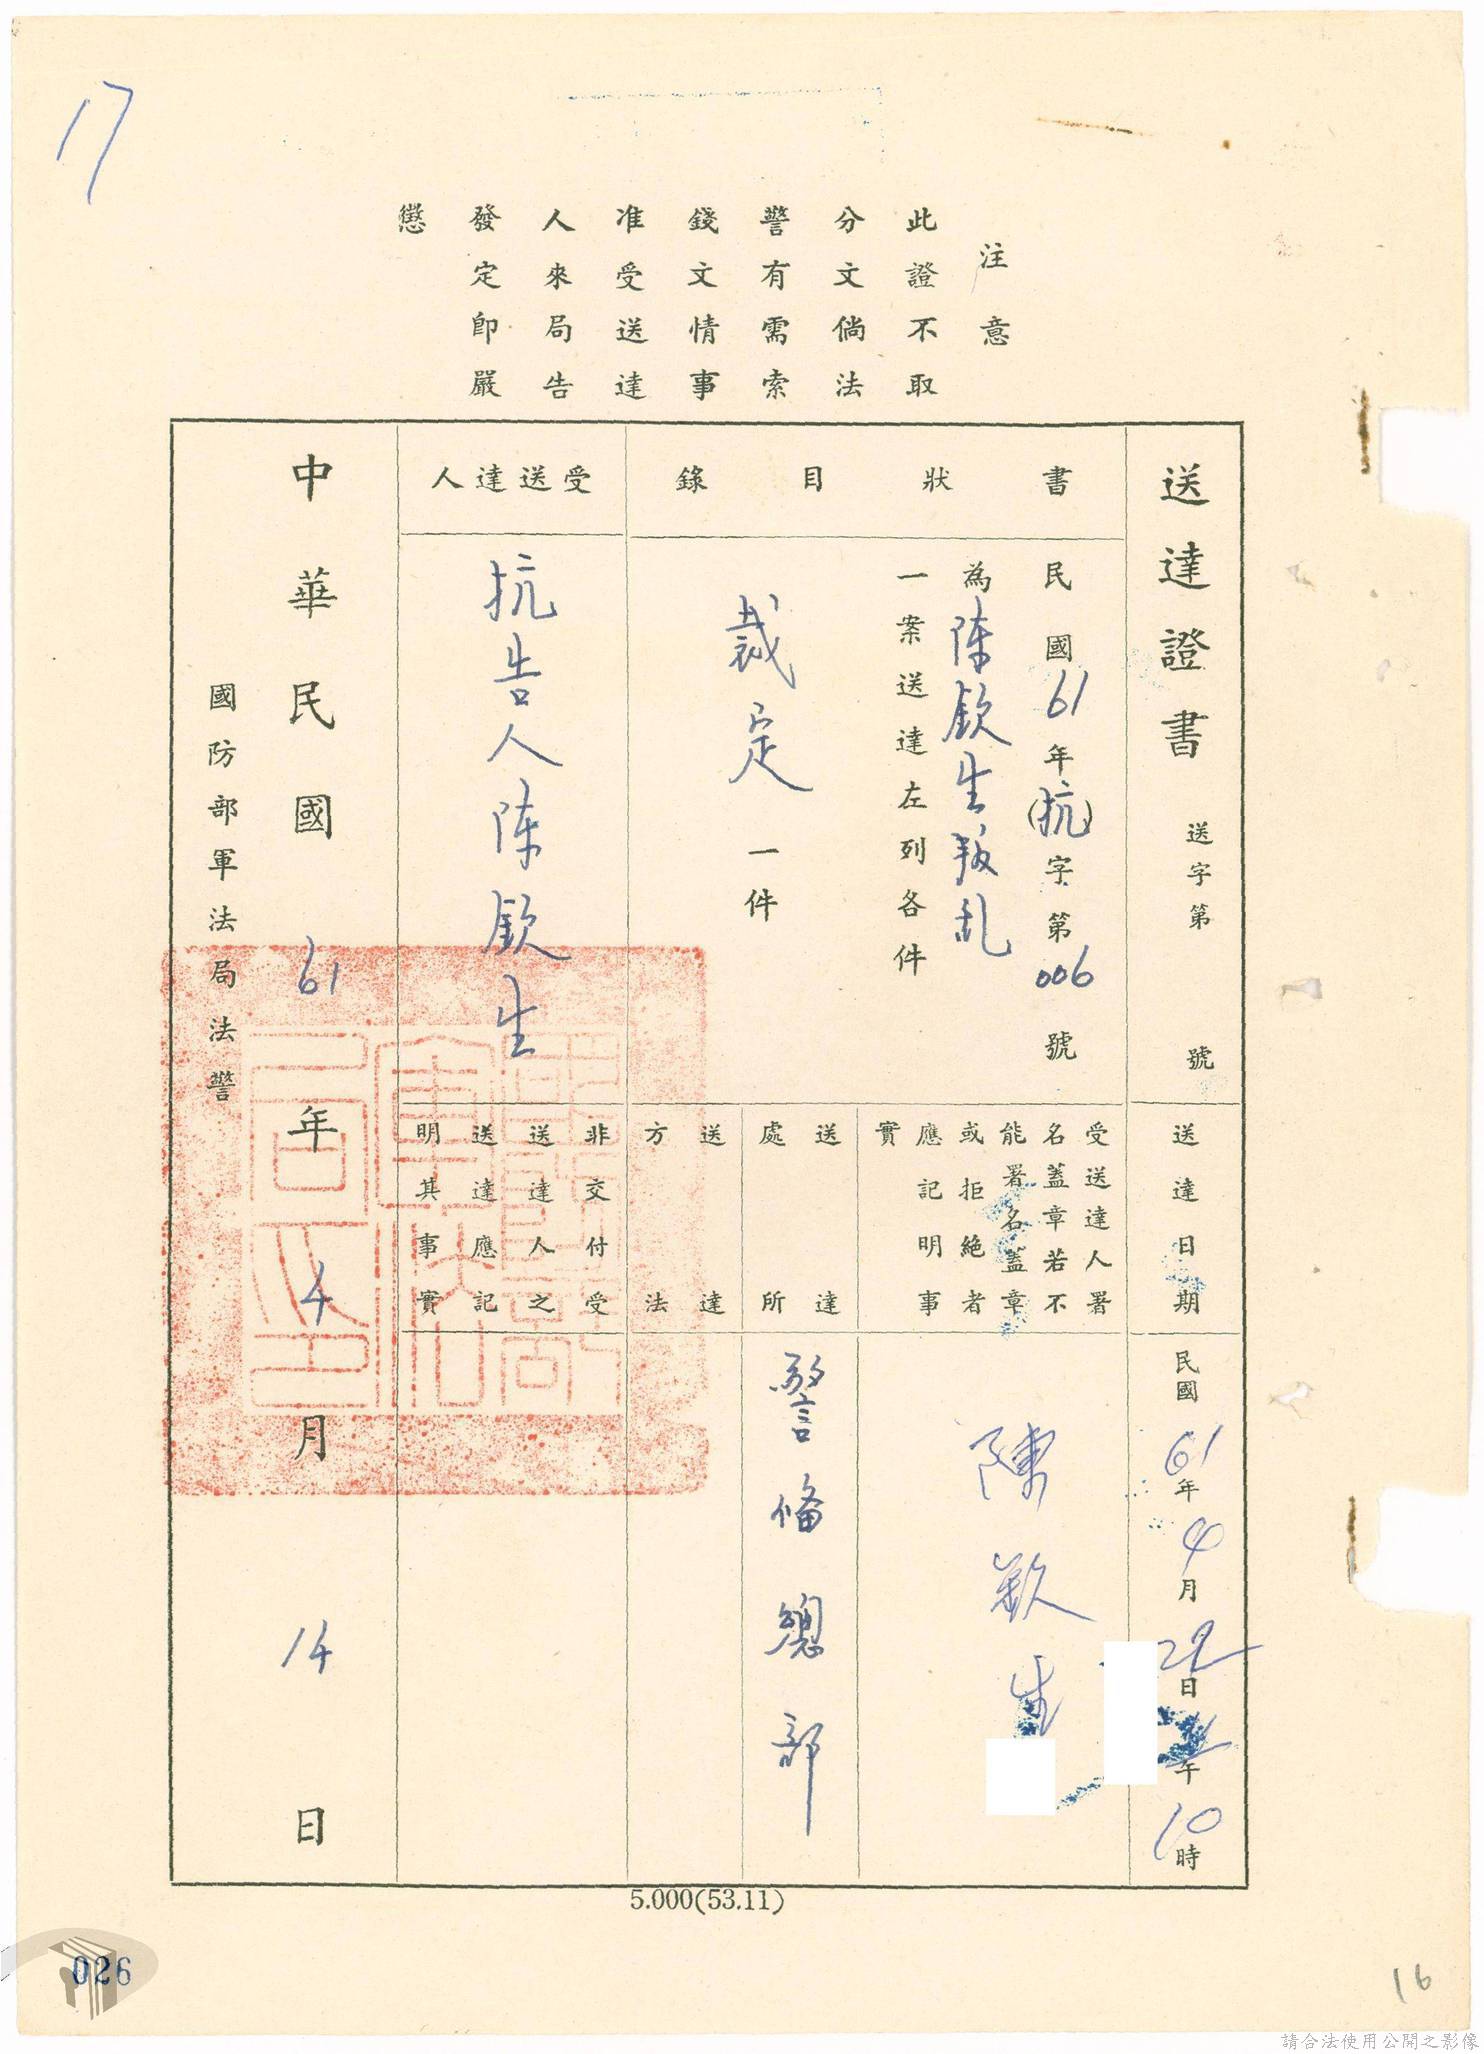 17
注意
此證不取
分文倘法
警有需索
錢文情事
准受送達
人來局告
發定即嚴
懲
送達證書 送字第 號
書狀目錄
民國61年(抗)字第006號
為陳欽生叛乱
一案送達左列各件
裁定 一件
受送達人
抗告人陳欽生
送達日期
民國61年4月22日上午10時
受送達人署
名蓋章若不
能署名蓋章
或拒絕者
應記明事
實
陳欽生
送達處所
警俻總部
送達方法
非交付受
送達人之
送達應記
明其事實
中華民國61年4月14日
國防部軍法局法警
5.000(53.11)
026
16
請合法使用公開之影像